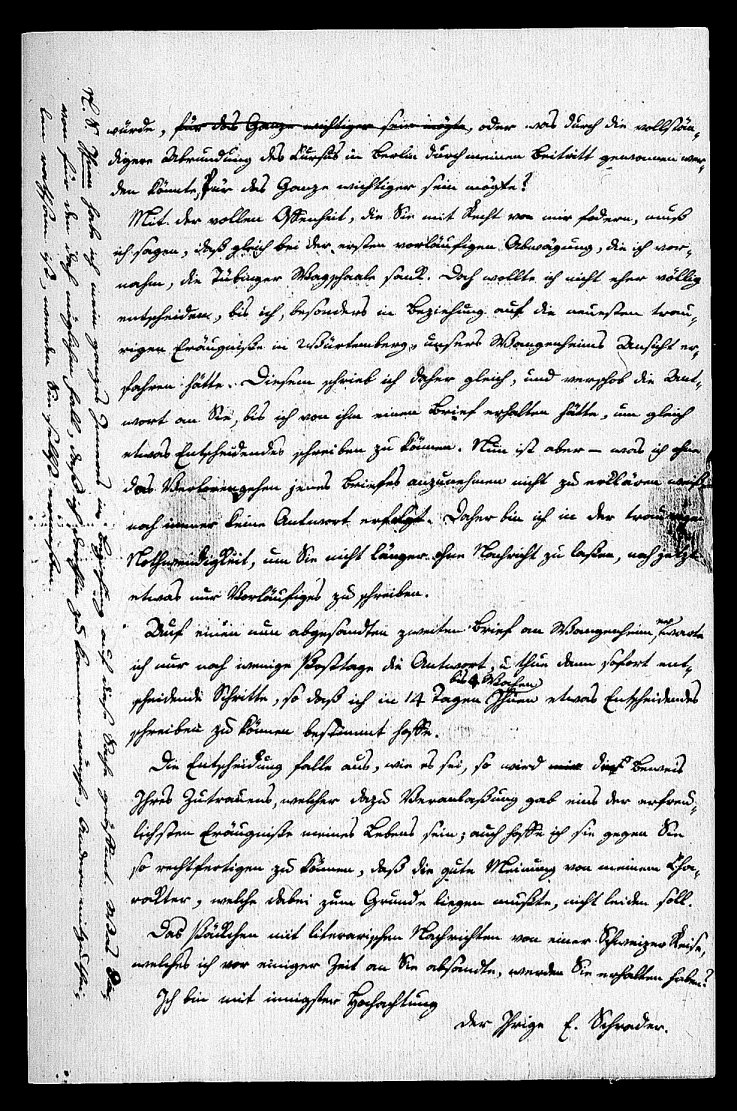 würde, für das Ganze wichtiger sein mögte, oder was durch die vollstän-
digere Abrundung des Kursus in Berlin durch meinen Beitritt gewonnen wer-
den könnte, für das Ganze wichtiger sein mögte?
Mit der vollen Offenheit, die Sie mit Recht von mir fodern, muß
ich sagen, daß gleich bei der ersten vorläufigen Abwägung, die ich vor-
nahm, die Tübinger Wagschaale sank. Doch wollte ich nicht eher völlig
entscheiden, bis ich, besonders in Beziehung auf die neuesten trau-
rigen Eräugniße in Würtemberg, unsers Wangenheims Ansicht er-
fahren hätte. Diesem schrieb ich daher gleich, und verschob die Ant-
wort an Sie, bis ich von ihm einen Brief erhalten hätte, um gleich
etwas Entscheidendes schreiben zu können. Nun ist aber – was ich ohne
das Verlorengehen jenes Briefes anzunehmen nicht zu erklären weiß –
noch immer keine Antwort erfolgt. Daher bin ich in der traurigen
Nothwendigkeit, um Sie nicht länger ohne Nachricht zu laßen, noch jetzt
etwas nur Vorläufiges zu schreiben.
Auf einen nun abgesandten zweiten Brief an Wangenheim, erwarte
ich nur noch wenige Posttage die Antwort, u thue dann sofort ent-
scheidende Schritte, so daß ich in 14 Tagen bis 4 Wochen Ihnen etwas Entscheidendes
schreiben zu können bestimmt hoffe.
Die Entscheidung falle aus, wie es sei, so wird mir dieß Beweis
Ihres Zutrauens, welcher dazu Veranlaßung gab eins der erfreu-
lichsten Eräugniße meines Lebens sein; auch hoffe ich sie gegen Sie
so rechtfertigen zu können, daß die gute Meinung von meinem Cha-
rakter, welche dabei zum Grunde liegen mußte, nicht leiden soll.
Das Päckchen mit literarischen Nachrichten von einer Schweizer Reise,
welches ich vor einiger Zeit an Sie absandte, werden Sie erhalten haben?
Ich bin mit innigster Hochachtung
der Ihrige E. Schrader.
N. S. Ihnen habe ich mein ganzes Inneres in Beziehung auf diese Sache geöffnet.
von für den Fall, daß ich